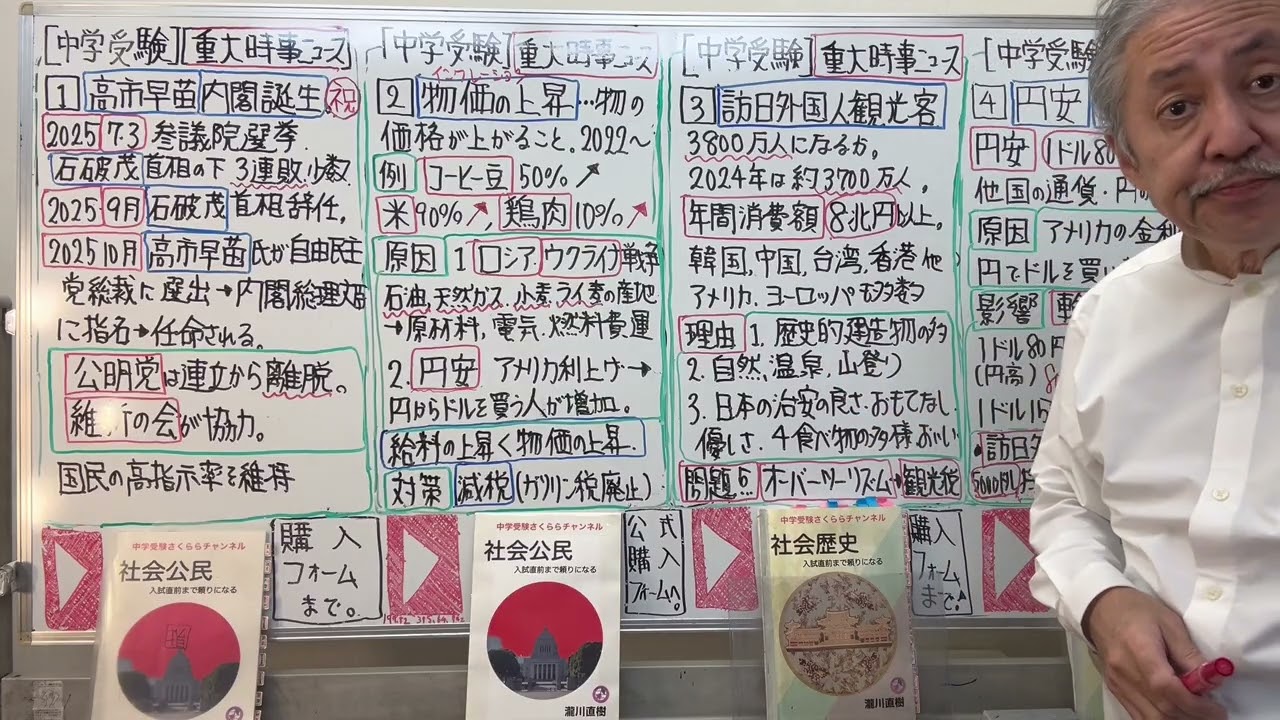 [中学受験] 重大時事ニュース
1 高市早苗内閣誕生。
2025 7.3 参議院選挙.
石破茂首相の下 3連敗.少数.
2025 9月 石破茂首相辞任。
2025 10月 高市早苗氏が自由民主
党総裁に選出→内閣総理大臣
に指名→任命される。
公明党は連立から離脱。
維 の会が協力。
国民の高指示率を維持
[中学受験] 重大時事ニュース
インフレーション
2 物価の上昇…物の
価格が上がること。2022〜
例 コーヒー豆 50%↗
米 90%↗ 鶏肉 10%↗
原因 1 ロシア.ウクライナ戦争
石油,天然ガス.小麦,ライ麦の産地
→原材料,電気.燃料費,運
2. 円安 アメリカ利上げ→
円からドルを買う人が増加。
給料の上昇<物価の上昇.
対策 減税(ガソリン税廃止)
[中学受験] 重大時事ニュース
3 訪日外国人観光客
3800万人になるか。
2024年は約3700万人。
年間消費額 8兆円以上。
韓国,中国,台湾,香港他
アメリカ.ヨーロッパも多数
理由 1. 歴史的建造物の多
2. 自然,温泉,山登り
3. 日本の治安の良さ.おもてなし.
優しさ. 4食べ物の多様 おいしい
問題点 オーバーツーリズム→観光税
[中学受験
4 円安
円安 1ドル80
他国の通貨・円の
原因 アメリカの金利
円でドルを買い
影響
1ドル80円
(円高)
1ドル15
訪日外
購入
フォーム
まで。
公式
購入
フォームへ。
購入
フォーム
まで!
中学受験さくららチャンネル
社会公民
入試直前まで頼りになる
中学受験さくららチャンネル
社会公民
入試直前まで頼りになる
瀧川直樹
中学受験さくららチャンネル
社会歴史
入試直前まで頼りになる
瀧川直樹